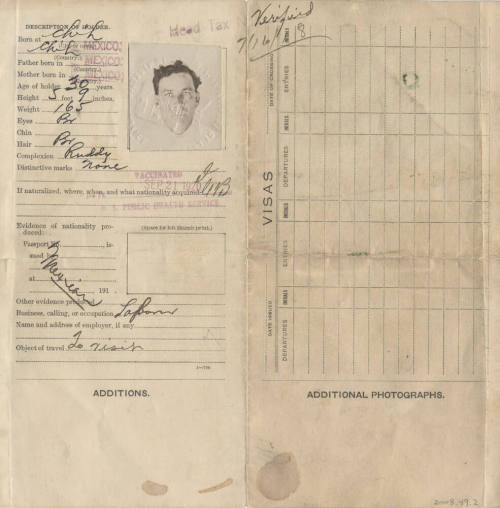 DESCRIPTION OF HOLDER.
Head Tax
Born at Chih MEXICO.
Chih
(Country.)
Father born in MEXICO.
(Country.)
Mother born in MEXICO.
(Country.)
Age of holder 30 years.
Height 5 feet 9 inches.
Weight 165
Eyes Br
Chin
Hair Br
Complexion Ruddy
Distinctive marks None
VACCINATED
SEP 21
If naturalized, where, when, and what nationality acquired
U. S. PUBLIC HEALTH SERVICE
Evidence of nationality produced:
(Space for left thumb print.)
Passport No. , is-
sued by
Mexican
at
191 .
Other evidence produced
Business, calling, or occupation Labor
Name and address of employer, if any
Object of travel To visit
ADDITIONS.
Verified
8
VISAS
DATE OF CROSSING
ENTRIES
INITIALS
DEPARTURES
INITIALS
ENTRIES
DATE ISSUED
INITIALS
DEPARTURES
ADDITIONAL PHOTOGRAPHS.
2008.49.2